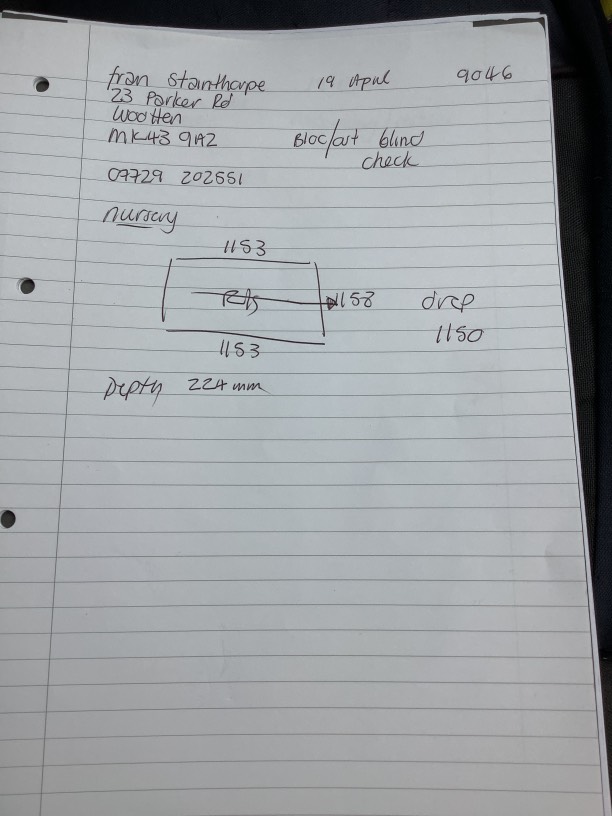 fran Stainthorpe 19 April 9046
23 Parker Rd
Wootten
MK43 9AZ Bloc/out blind
check
07729 202551
nursery
1153
R/s 1158 drop
1150
1153
Depth 224mm